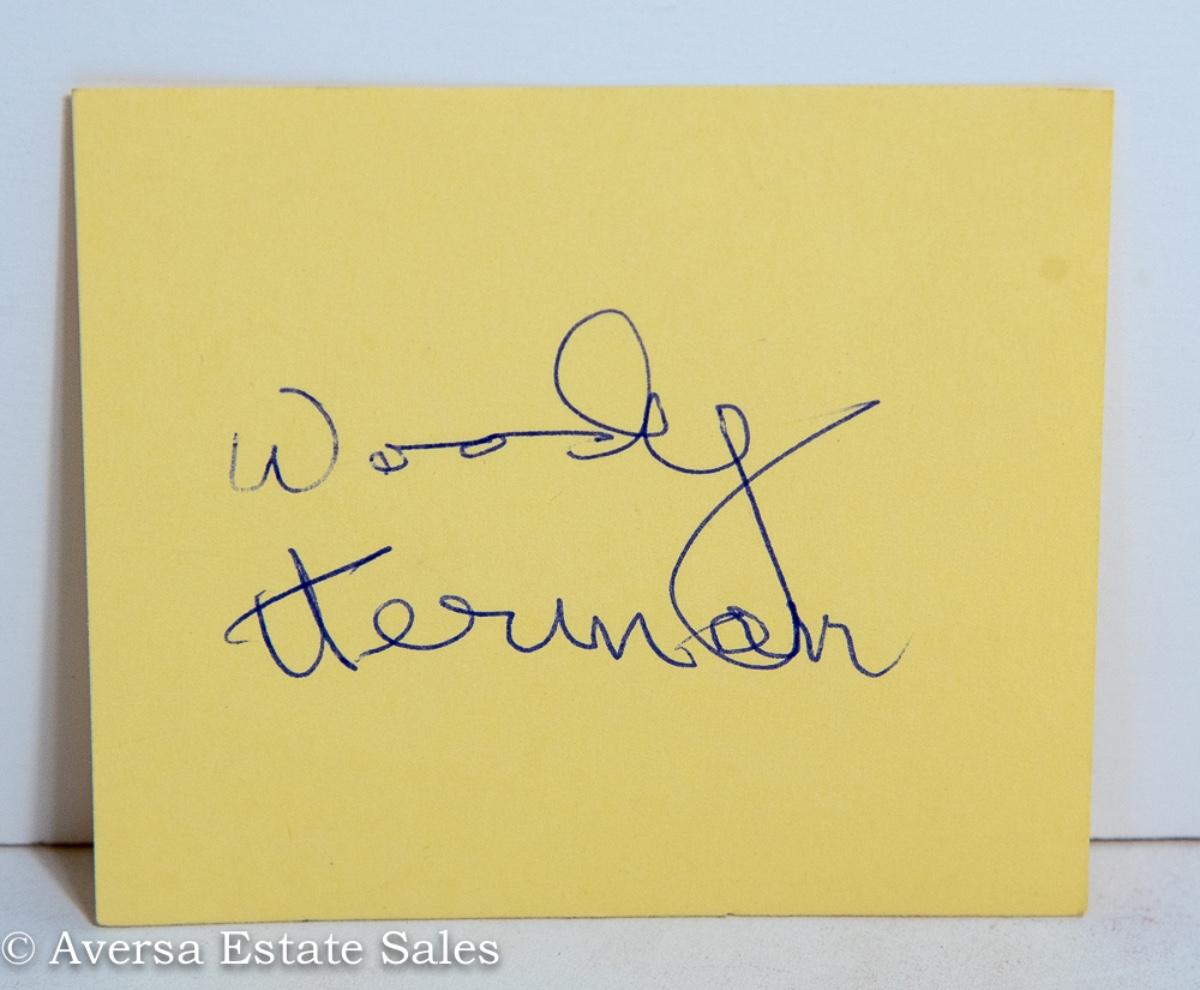 Woody
Herman
© Aversa Estate Sales